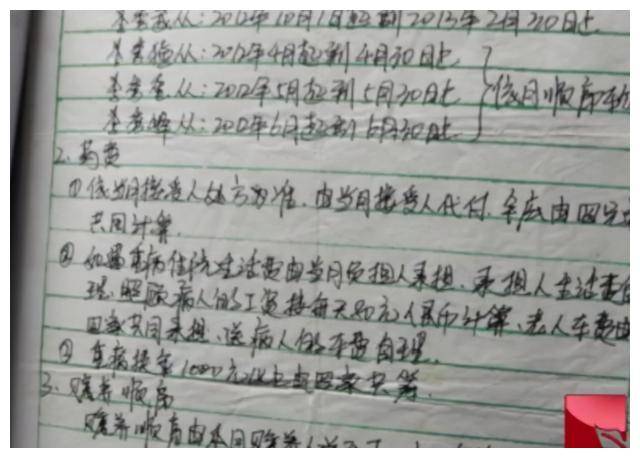 从:2012年10月1日起到2013年2月30日止
从:2012年4月起到4月30日止
从:2012年5月起到5月30日止 依月顺序
从:2012年6月起到6月30日止
2、药费
①依当月接受人处方为准.由当月接受人代付.年底由四兄
共同计算.
②如遇重病住院生活费由当月负担人承担.承担人生活费自
理.照顾病人的工资按每天80元人民币计算、老人车费由
四家共同承担、送病人的车费自理.
③重病按 1000元以上 四家共筹.
3、赡养顺序
赡养顺序由 赡养人